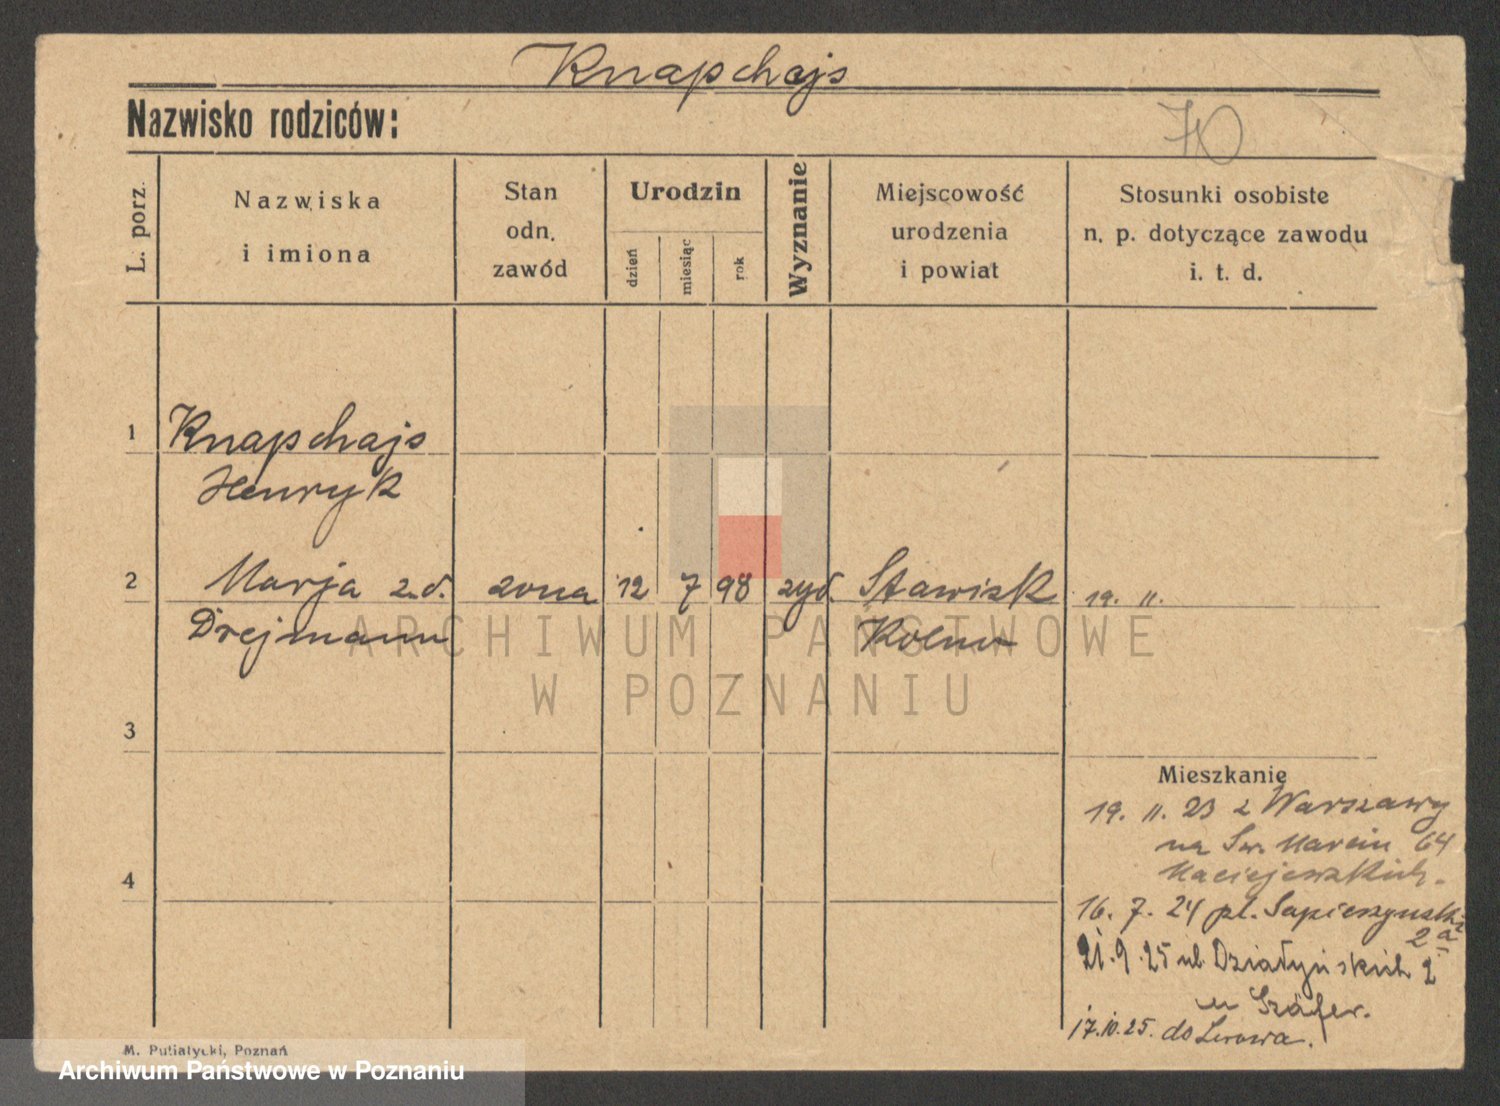 Knapchajs
Nazwisko rodziców:
70
L. porz.
Nazwiska
i imiona
Stan
odn.
zawód
Urodzin
dzień
miesiąc
rok
Wyznanie
Miejscowość
urodzenia
i powiat
Stosunki osobiste
n. p. dotyczące zawodu
i. t. d.
1 Knapchajs
Henryk
2 Marja z.d. żona 12 7 98 żyd. Stawisk 19. II.
Drejmann Kolno
ARCHIWUM PAŃSTWOWE
W POZNANIU
3
Mieszkanie
19. II. 23 z Warszawy
na Św. Marcin 64
Maciejewskich.
4
16. 7. 24 pl. Sapieżyński
2a
21. 9. 25 ul. Działyńskich 2
u Szäfer.
17.10.25. do Lwowa.
M. Putiatycki, Poznań
Archiwum Państwowe w Poznaniu